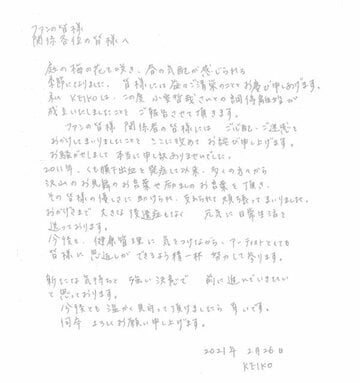 ファンの皆様
関係各位の皆様へ
庭の梅の花も咲き、春の気配が感じられる
季節になりました。皆様には益々ご清栄のこととお慶び申しあげます。
私 KEIKOは、この度 小室哲哉さんとの調停離婚が
成立いたしましたことを ご報告させて頂きます。
ファンの皆様 関係者の皆様には ご心配、ご迷惑を
おかけしてまいりましたこと ここに改めて お詫び申し上げます。
お騒がせしまして 本当に申し訳ありませんでした。
2011年、くも膜下出血を発症して以来、多くの方々から
沢山のお見舞のお言葉や励ましのお言葉を頂き、
その皆様の優しさに助けられ、支えられて頑張ってまいりました。
おかげさまで 大きな後遺症もなく 元気に日常生活を
送っております。
今後も、健康管理に気をつけながら、アーティストとしても
皆様に 恩返しが できるよう精一杯 努力して参ります。
新たな気持ちと 強い決意で 前に進んでいきたい
と思っております。
今後とも 温かく見守って頂けましたら 幸いです。
何卒 よろしくお願い申し上げます。
2021年 2月26日
KEIKO